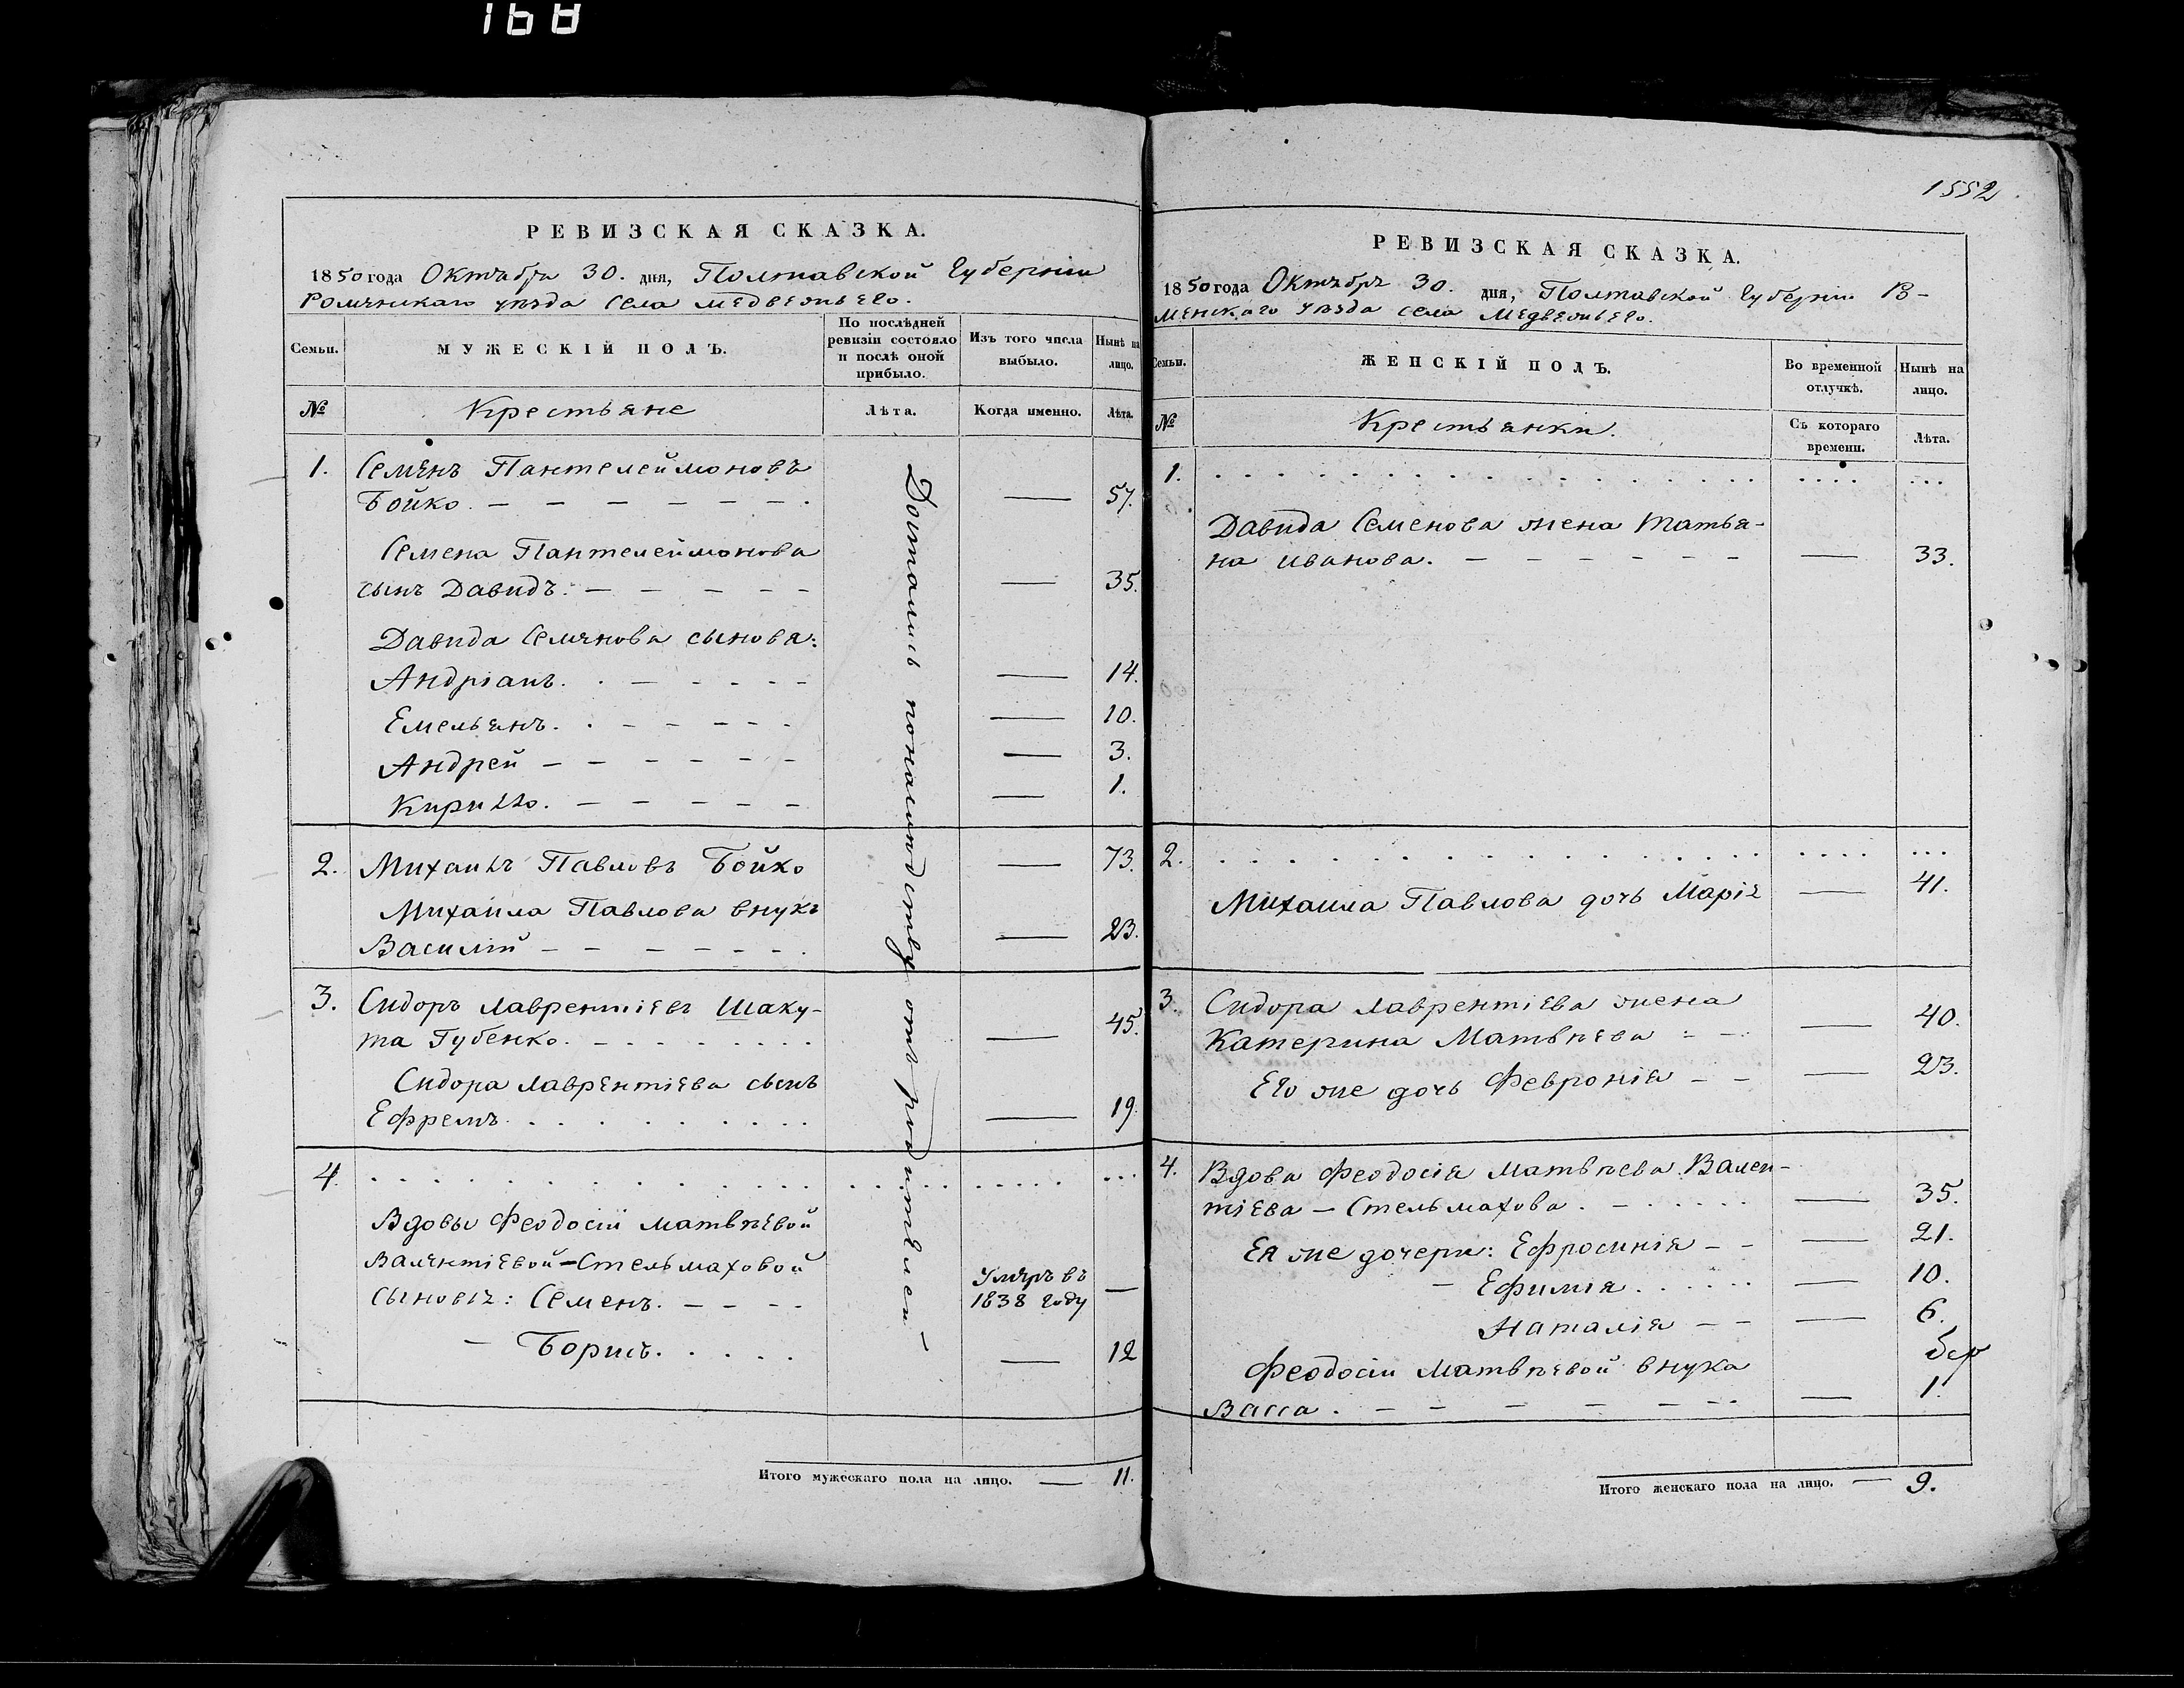 168
РЕВИЗСКАЯ СКАЗКА.
1850 года Октября 30. дня, Полтавской Губерніи
Роменскаго уѣзда села Медвежьего.
Семьи.
МУЖЕСКІЙ ПОЛЪ.
По послѣдней
ревизіи состояло
и послѣ оной
прибыло.
Изъ того числа
выбыло.
Нынѣ на
лицо.
№
Крестьяне
Лѣта.
Когда именно.
Лѣта.
1.
Семенъ Пантелеймоновъ
Бойко.
57.
Семена Пантелеймонова
сынъ Давидъ.
35.
Давида Семенова сыновя:
Андріанъ.
14.
Емельянъ.
10.
Андрей
3.
Кирилло.
1.
2.
Михаилъ Павловъ Бойко
73.
Михаила Павлова внукъ
Василій
23.
3.
Сидоръ Лаврентіевъ Шаку-
та Губенко.
45.
Сидора Лаврентіева сынъ
Ефремъ.
19.
4.
Вдовы Феодосіи Матвѣевой
Валентіевой-Стельмаховой
сыновья: Семенъ.
Умеръ въ
1838 году
Борисъ.
12
Достались по наслѣдству отъ родителей
Итого мужескаго пола на лицо.
11.
1552
РЕВИЗСКАЯ СКАЗКА.
1850 года Октября 30. дня, Полтавской Губерніи Ро-
менскаго уѣзда села Медвежьего.
Семьи.
ЖЕНСКІЙ ПОЛЪ.
Во временной
отлучкѣ.
Нынѣ на
лицо.
№
Крестьянки.
Съ котораго
времени.
Лѣта.
1.
Давида Семенова жена Татья-
на Иванова.
33.
2.
Михаила Павлова дочь Марія
41.
3.
Сидора Лаврентіева жена
Катерина Матвѣева
40.
Его же дочь Февронія
23.
4.
Вдова Феодосія Матвѣева Вален-
тіева - Стельмахова.
35.
Ея же дочери: Ефросинія
21.
Ефимія.
10.
Наталія
6.
Феодосіи Матвѣевой внука
Васса.
1.
Итого женскаго пола на лицо.
9.